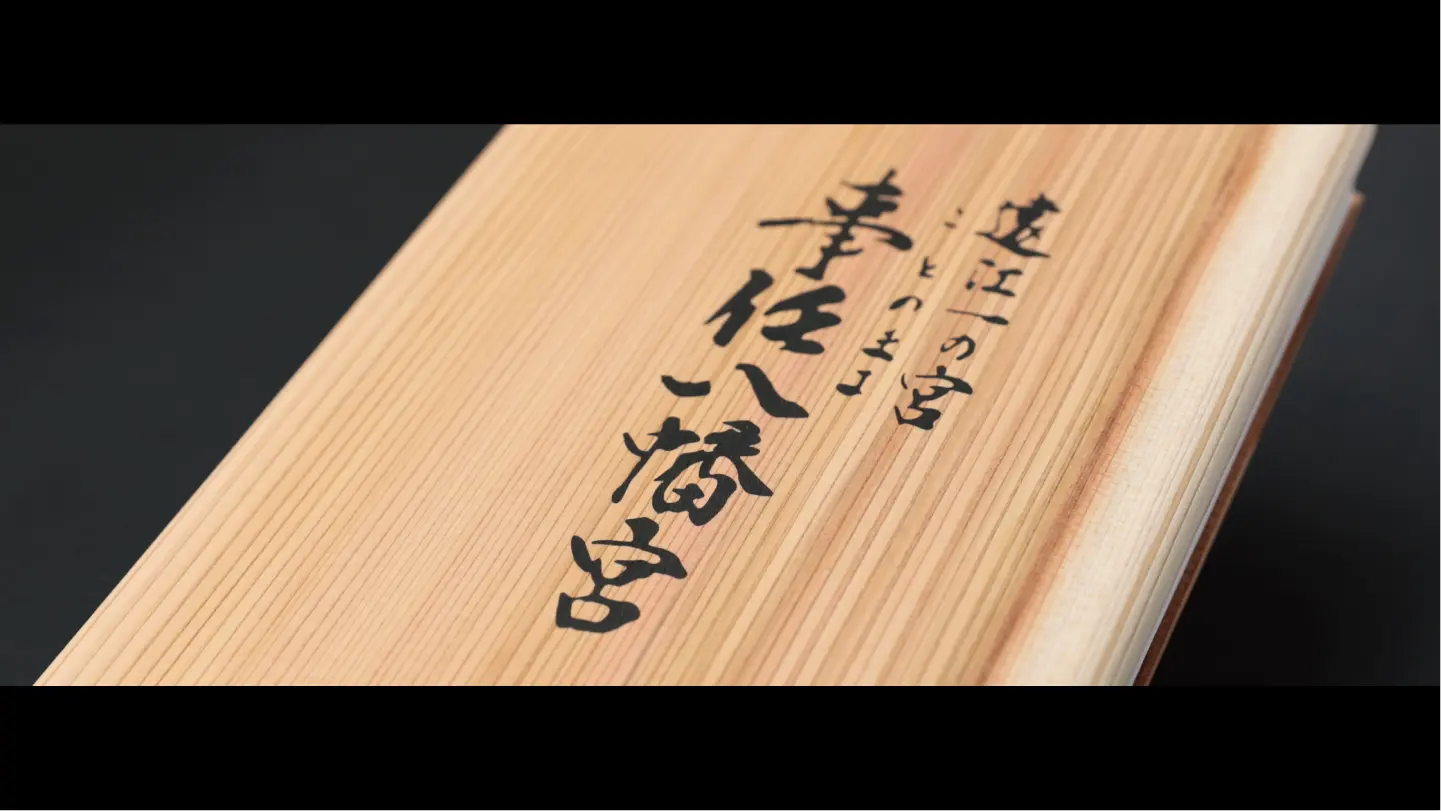 遠江一の宮
ことのまま
事任八幡宮